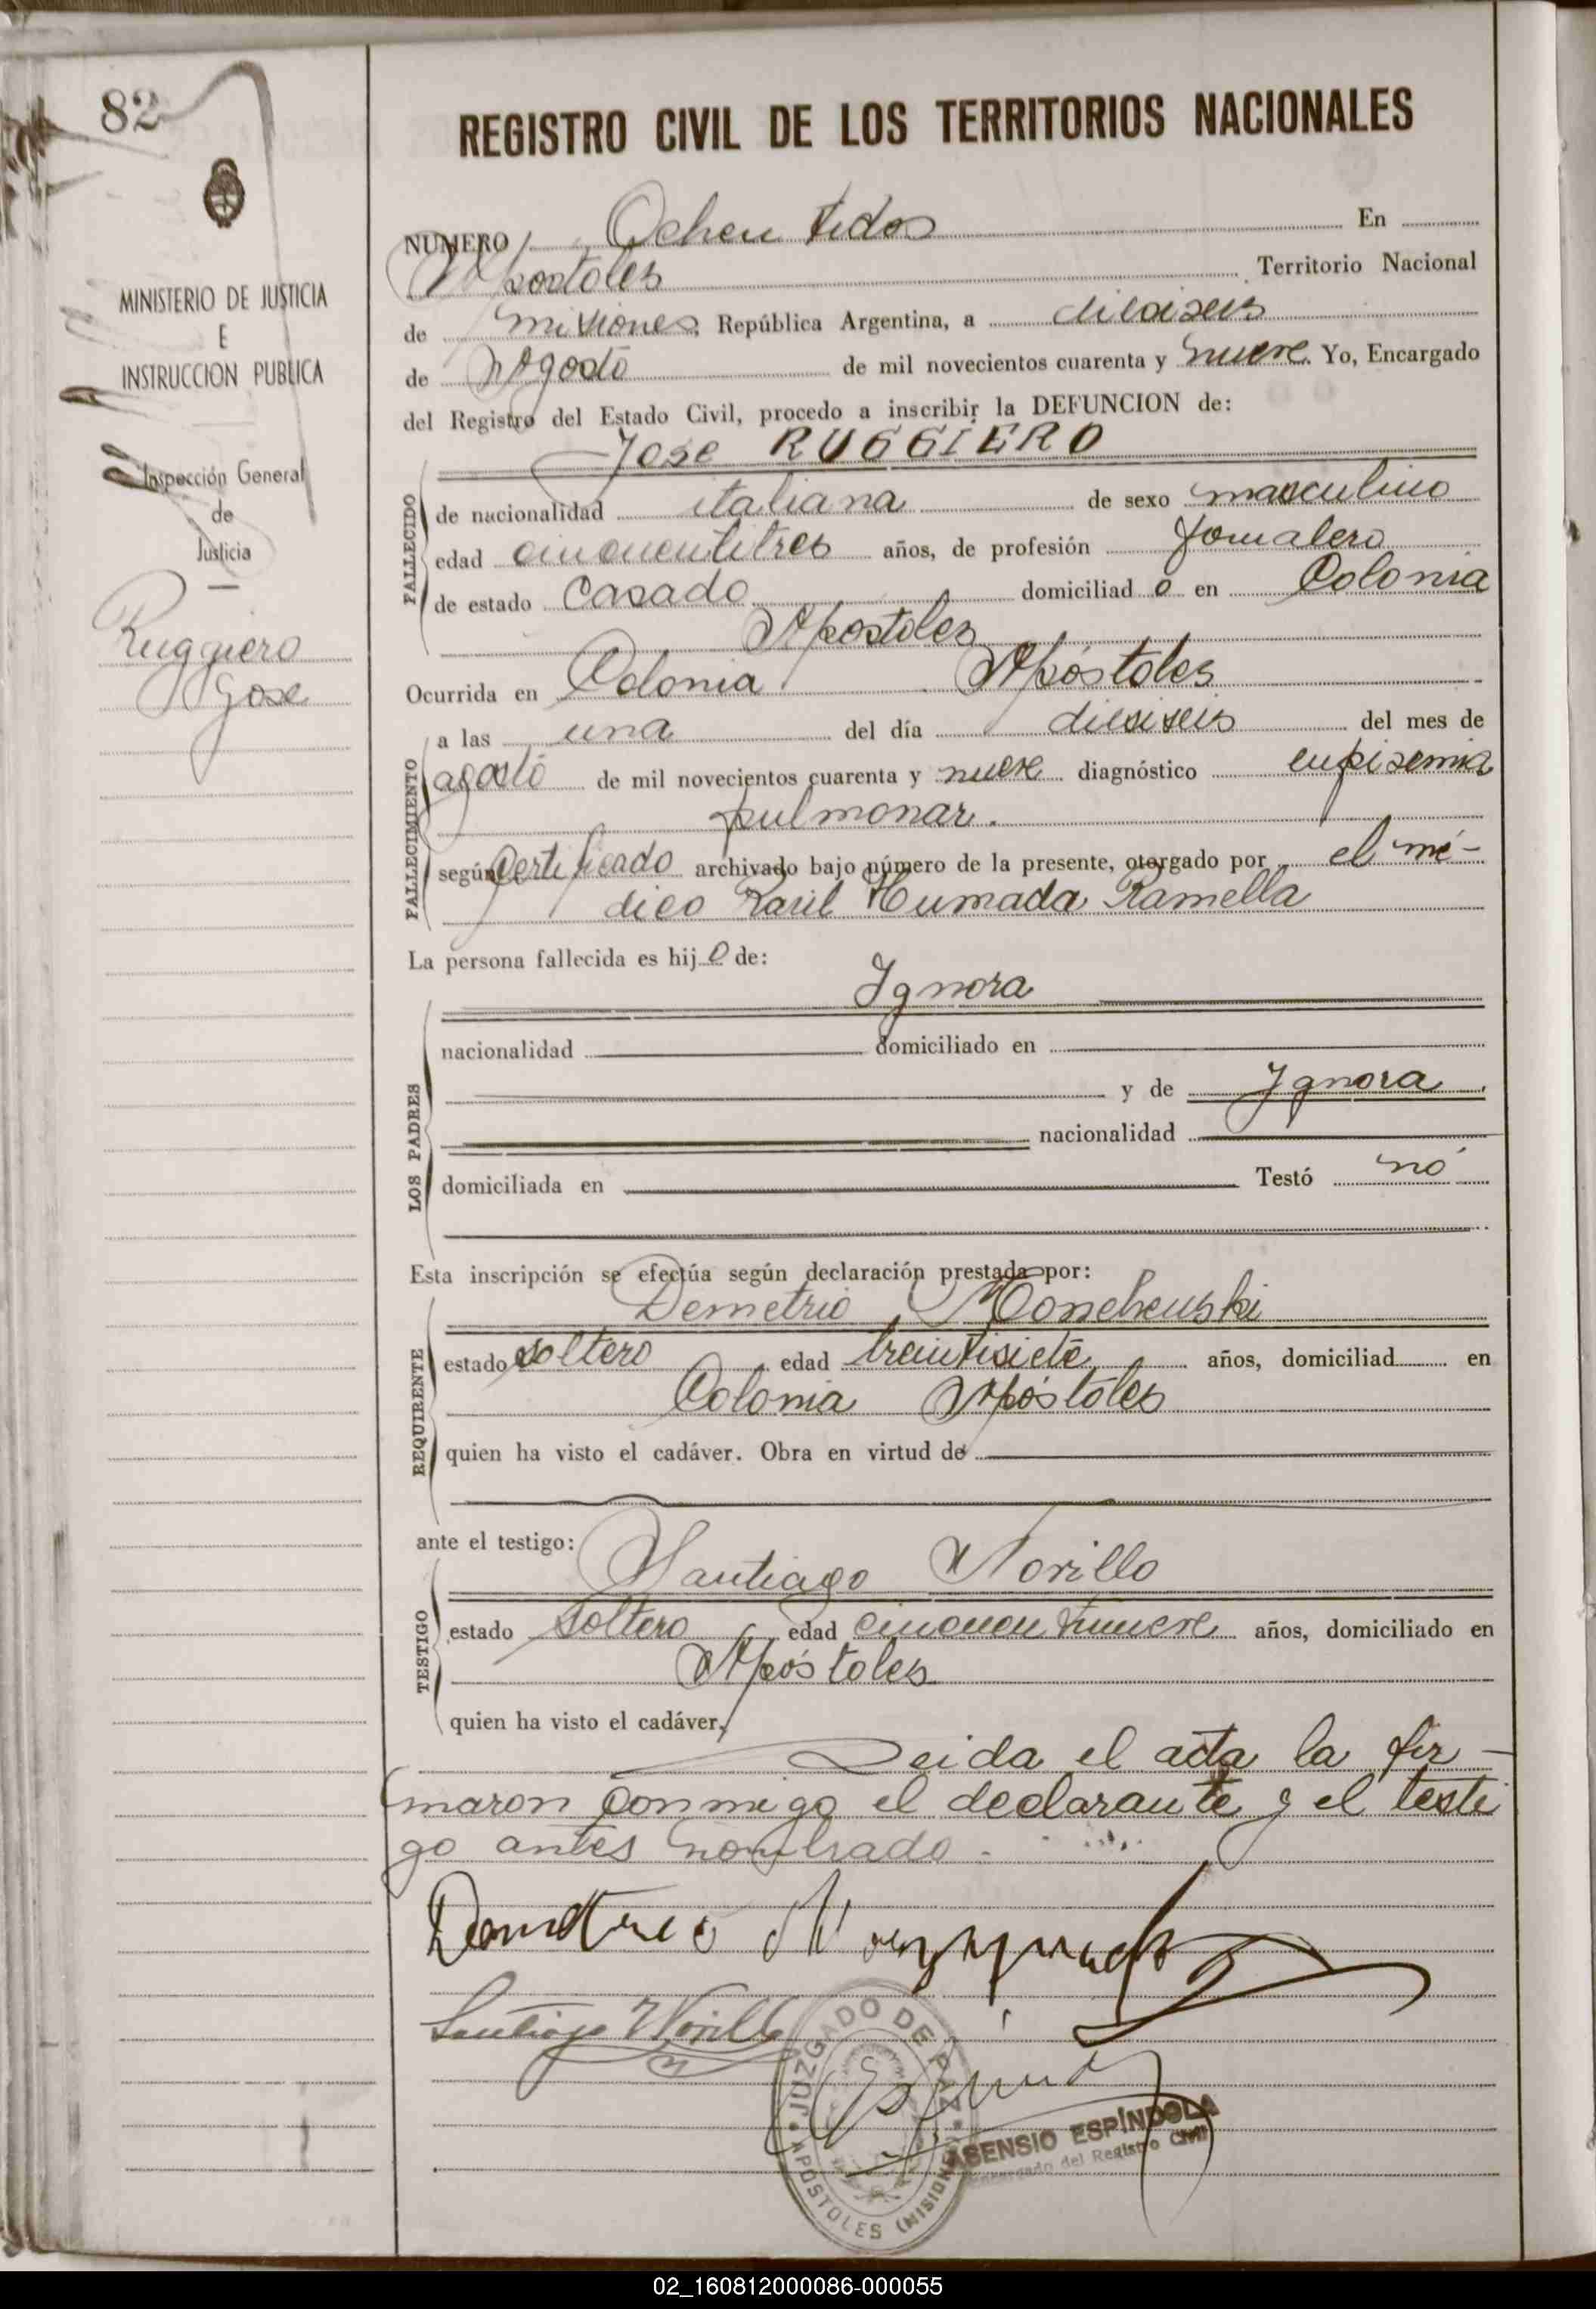 82
MINISTERIO DE JUSTICIA
E
INSTRUCCION PUBLICA
Inspección General
de
Justicia
Ruggiero
Jose
REGISTRO CIVIL DE LOS TERRITORIOS NACIONALES
NUMERO Ochentidos En
Apostoles Territorio Nacional
de misiones, República Argentina, a dieciseis
de Agosto de mil novecientos cuarenta y nueve. Yo, Encargado
del Registro del Estado Civil, procedo a inscribir la DEFUNCION de:
Jose RUGGIERO
FALLECIDO
de nacionalidad italiana de sexo masculino
edad cincuentitres años, de profesión Jornalero
de estado Casado domiciliad o en Colonia
Apostoles
Ocurrida en Colonia Apóstoles
FALLECIMIENTO
a las una del día diesiseis del mes de
agosto de mil novecientos cuarenta y nueve diagnóstico enfisemia
pulmonar.
según Certificado archivado bajo número de la presente, otorgado por el mé-
dico Raúl Humada Ramella
La persona fallecida es hij o de:
LOS PADRES
Ignora
nacionalidad domiciliado en
y de Ignora
nacionalidad
domiciliada en Testó nó
Esta inscripción se efectúa según declaración prestada por:
REQUIRENTE
Demetrio
estado soltero edad treintisiete años, domiciliad en
Colonia Apóstoles
quien ha visto el cadáver. Obra en virtud de
ante el testigo:
TESTIGO
Santiago Norillo
estado soltero edad cincuentinueve años, domiciliado en
Apóstoles
quien ha visto el cadáver,
Leida el acta la fir-
maron conmigo el declarante y el testi
go antes nombrado.
Santiago Norillo
JUZGADO DE PAZ
APOSTOLES (MISIONES)
ASENSIO ESPÍNDOLA
Encargado del Registro Civil
02_160812000086-000055